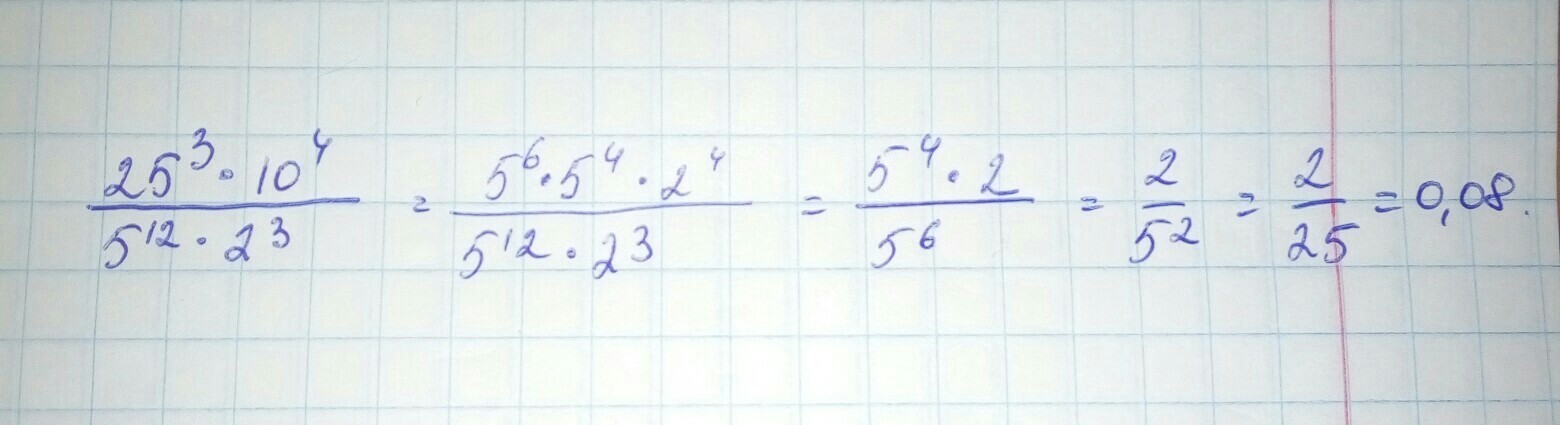 25³·10⁴/5¹²·2³ = 5⁶·5⁴·2⁴/5¹²·2³ = 5⁴·2/5⁶ = 2/5² = 2/25 = 0,08.